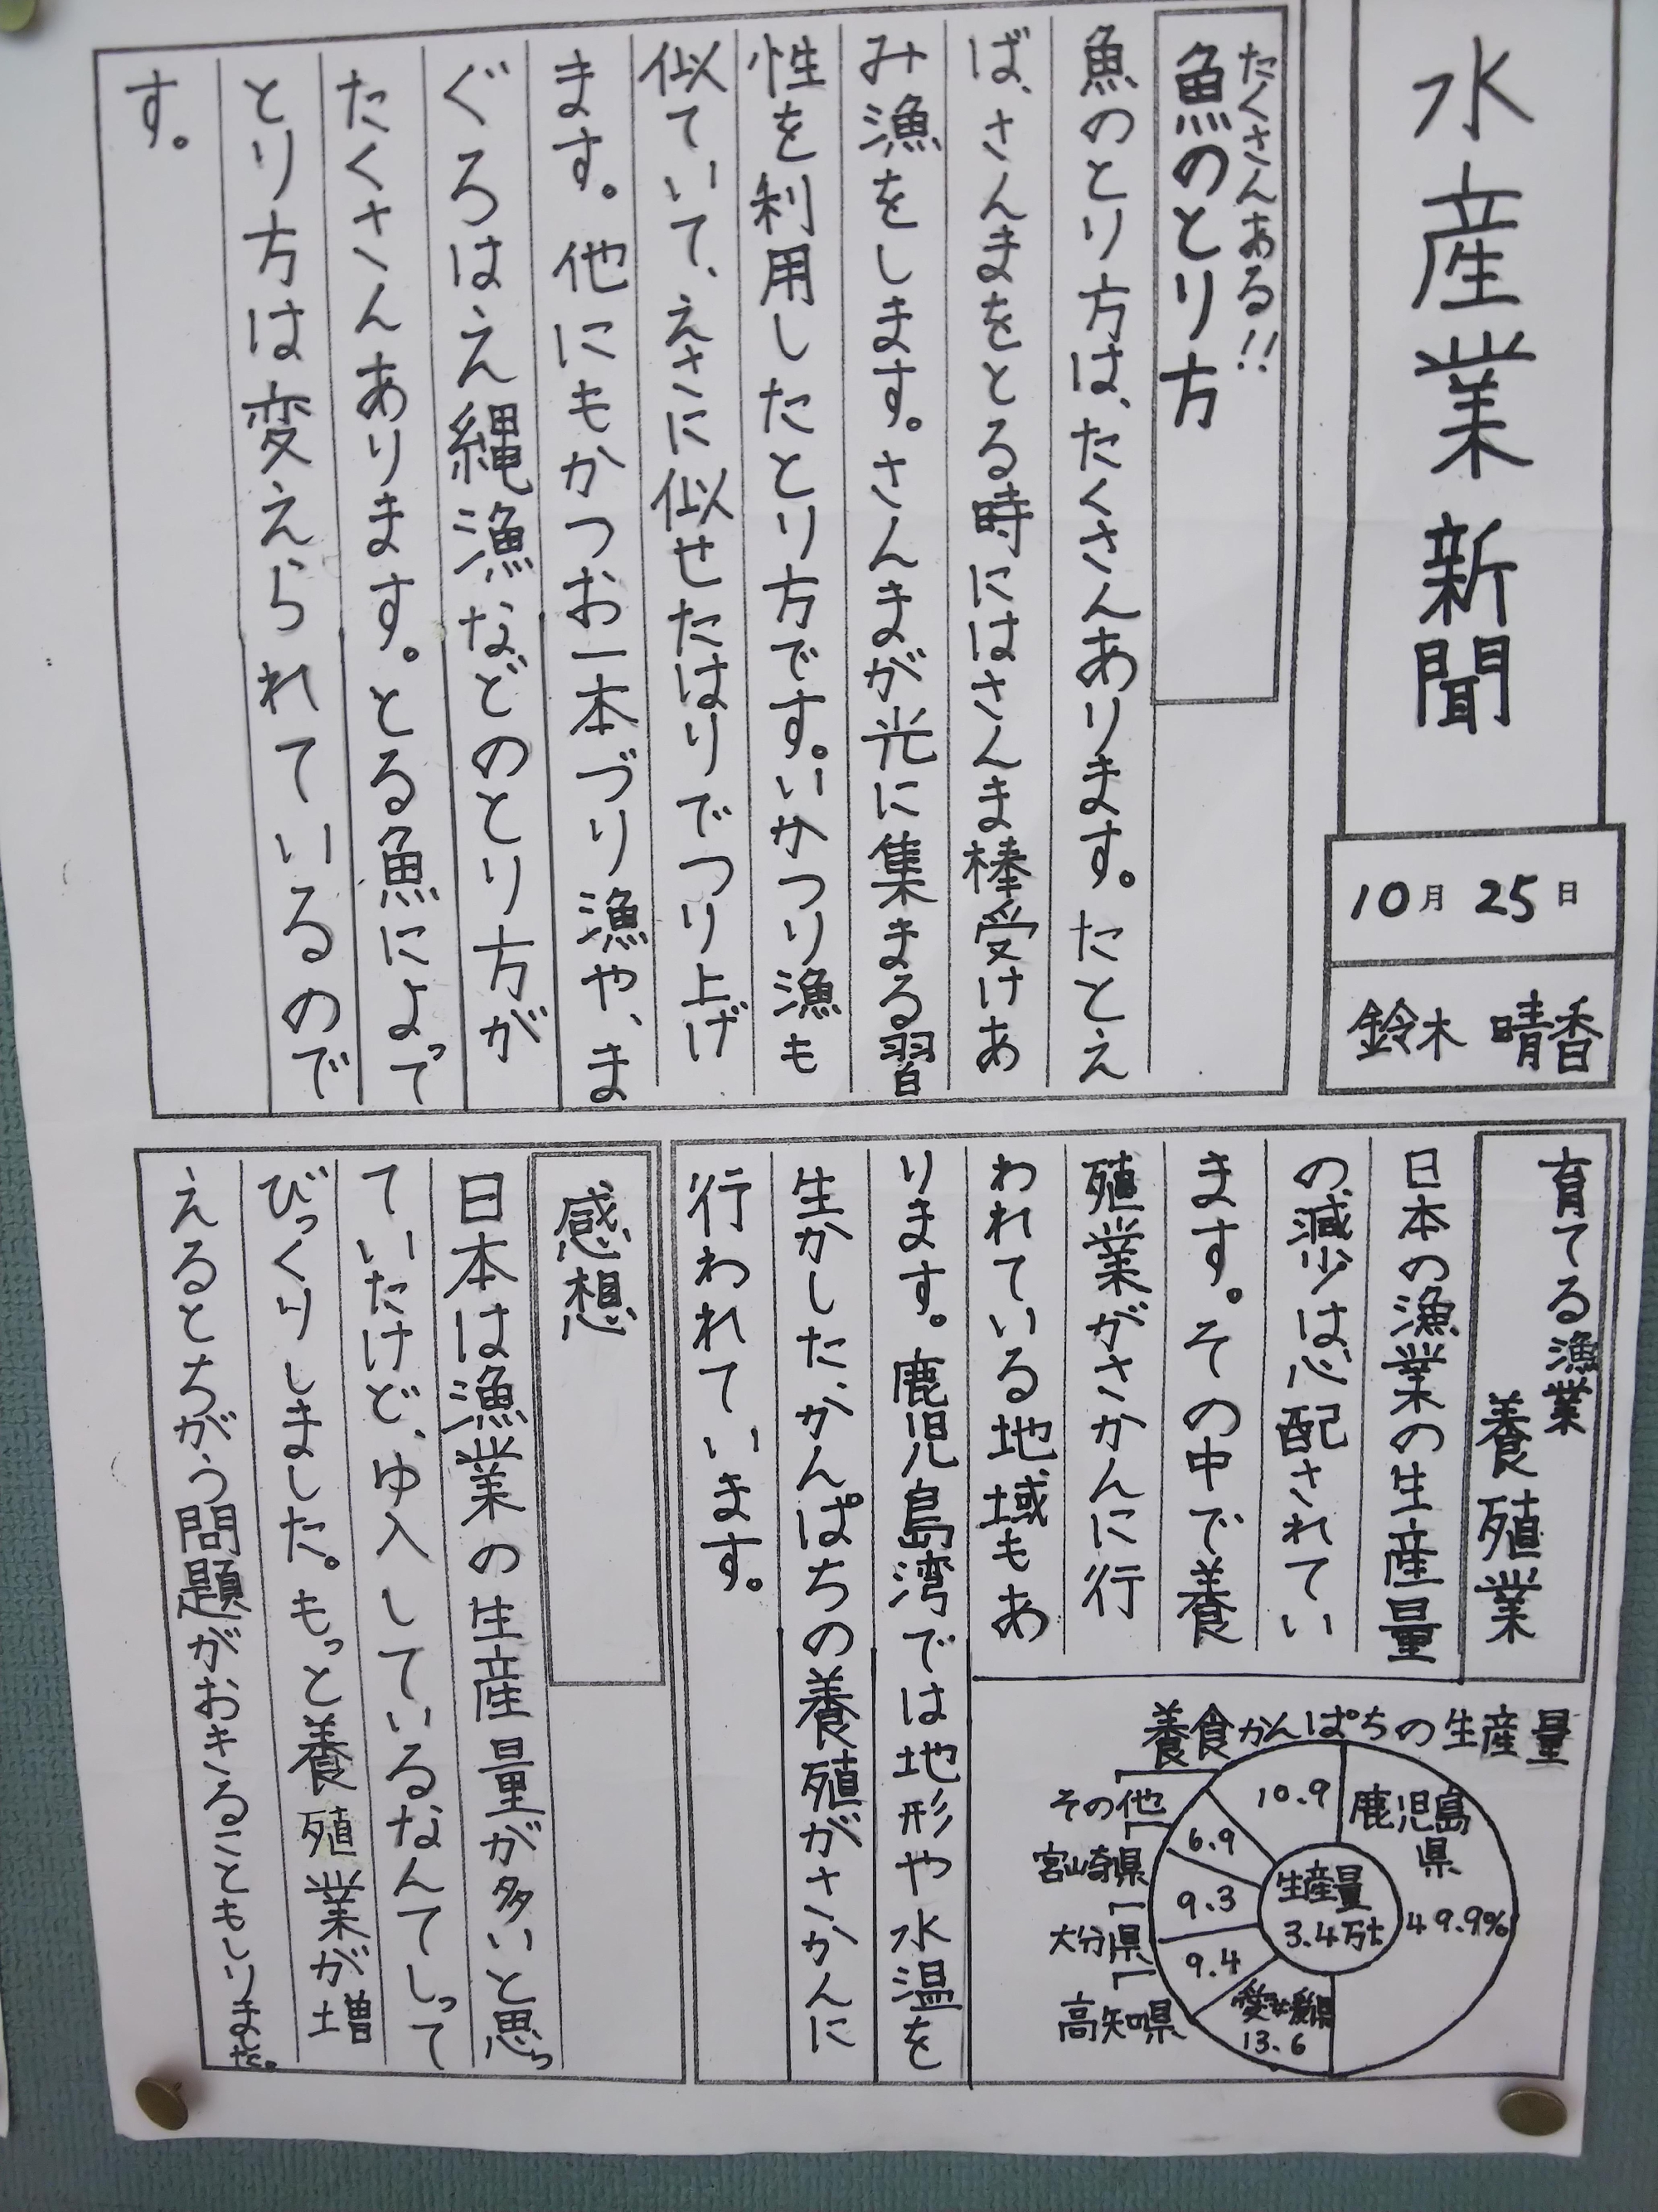 水産業新聞
10月25日
鈴木 晴香
たくさんある!!
魚のとり方
魚のとり方は、たくさんあります。たとえ
ば、さんまをとる時にはさんま棒受けあ
み漁をします。さんまが光に集まる習
性を利用したとり方です。いかつり漁も
似ていて、えさに似せたはりでつり上げ
ます。他にもかつお一本づり漁や、ま
ぐろはえ縄漁などのとり方が
たくさんあります。とる魚によって
とり方は変えられているので
す。
育てる漁業
養殖業
日本の漁業の生産量
の減少は心配されてい
ます。その中で養
殖業がさかんに行
われている地域もあ
ります。鹿児島湾では地形や水温を
生かしたかんぱちの養殖がさかんに
行われています。
養食かんぱちの生産量
鹿児島県
49.9%
愛媛県
13.6
高知県
9.4
大分県
9.3
宮崎県
6.9
その他
10.9
生産量
3.4万t
感想
日本は漁業の生産量が多いと思っ
ていたけど、ゆ入しているなんてしって
びっくりしました。もっと養殖業が増
えるとちがう問題がおきることもしりました。